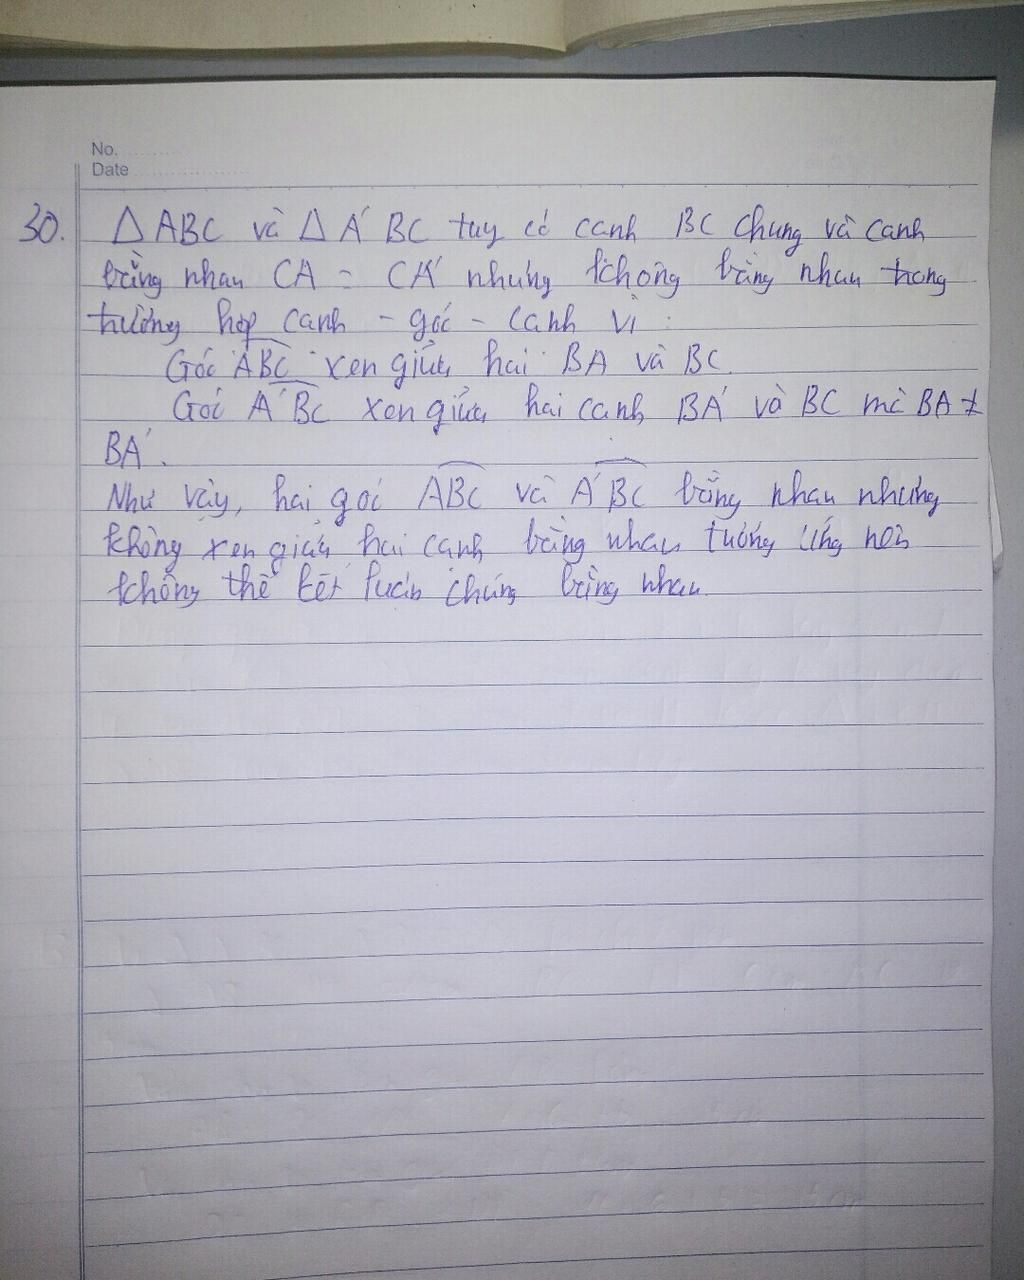 No.
Date
30. Δ ABC và Δ A' BC tuy có cạnh BC chung và cạnh
bằng nhau CA = CA' nhưng không bằng nhau trong
trường hợp cạnh - góc - cạnh vì :
Góc ABC xen giữa hai BA và BC.
Góc A'BC xen giữa hai cạnh BA' và BC mà BA ≠
BA'.
Như vậy, hai góc ABC và A'BC bằng nhau nhưng
không xen giữa hai cạnh bằng nhau tương ứng nên
không thể kết luận chúng bằng nhau.